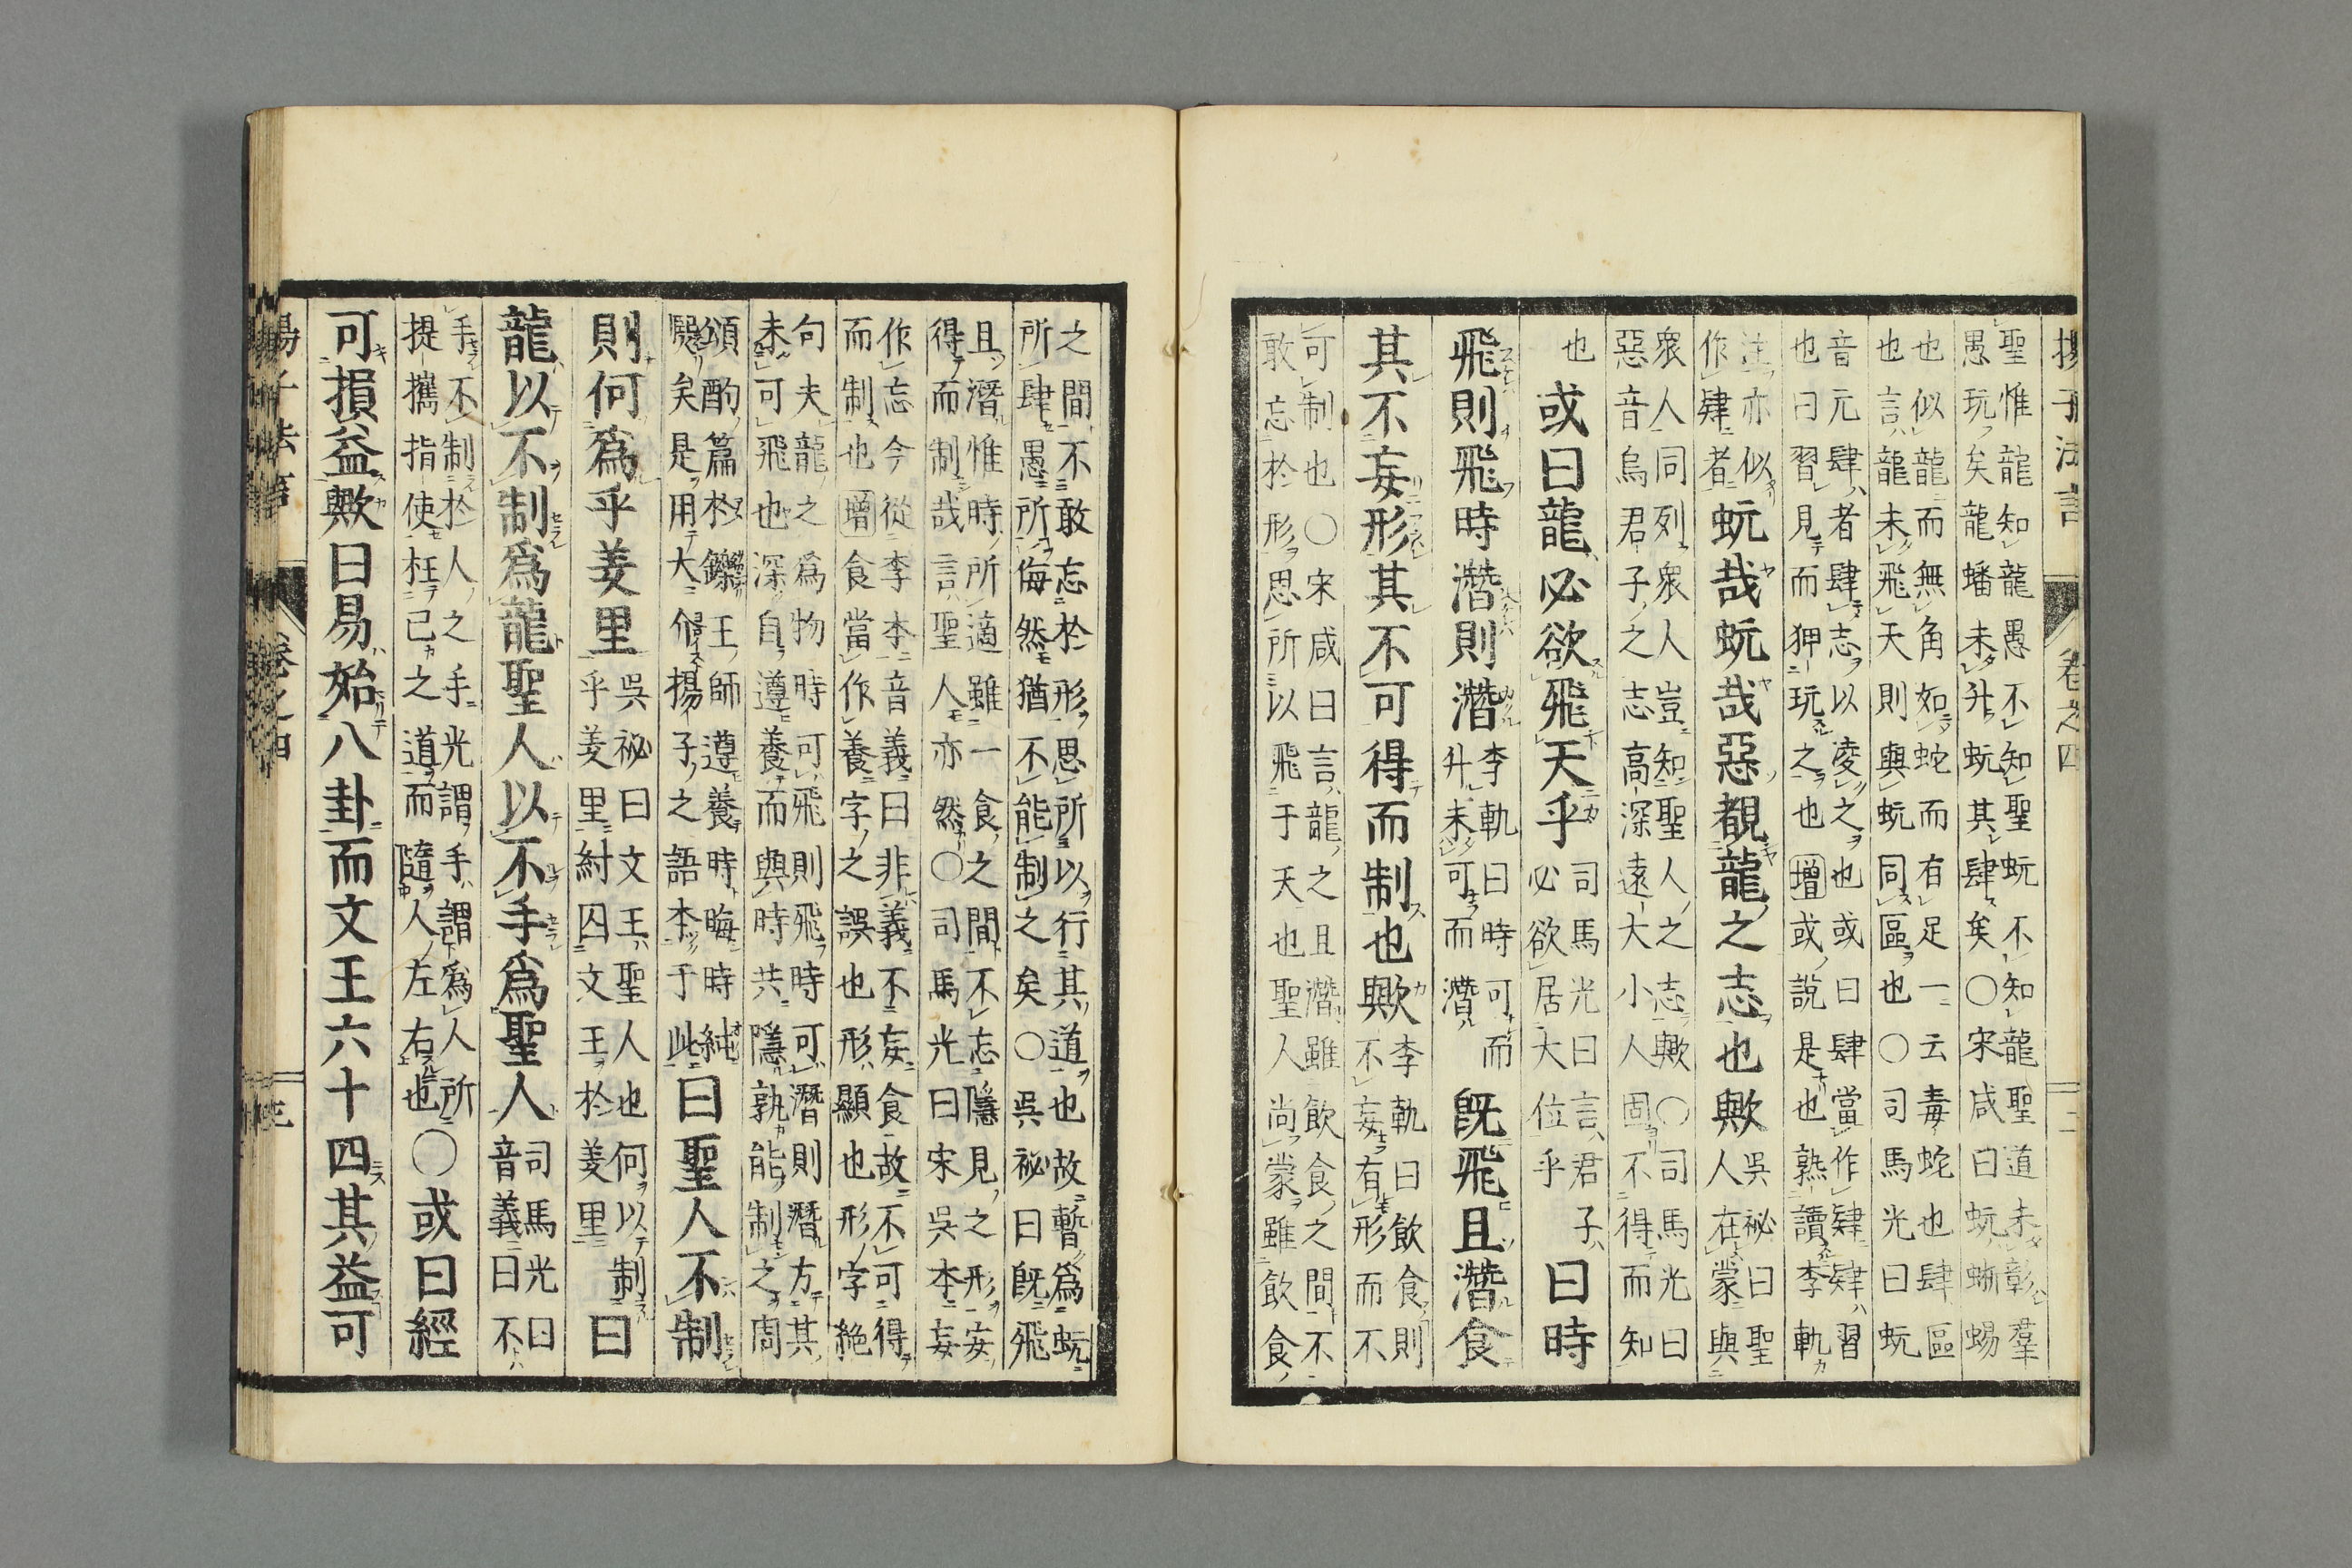 揚子法言　卷之四　二
聖惟龍知龍愚不知聖蚖不知龍聖道未彰羣
愚玩矣龍蟠未升蚖其肆矣○宋咸曰蚖蜥蜴
也似龍而無角如蛇而有足一云毒蛇也肆區
也言龍未飛天則與蚖同區也○司馬光曰蚖
音元肆者肆志以凌之也或曰肆當作肄肄習
也曰習見而狎玩之也增或說是也熟讀李軌
注亦似
作肆者
蚖哉蚖哉惡覩龍之志也歟
吳祕曰聖
人在蒙與
衆人同列衆人豈知聖人之志歟○司馬光曰
惡音烏君子之志高深遠大小人固不得而知
也
或曰龍必欲飛天乎
司馬光曰言君子
必欲居大位乎
曰時
飛則飛時潛則潛
李軌曰時可而
升未可而潛
既飛且潛食
其不妄形其不可得而制也歟
李軌曰飲食則
不妄有形而不
可制也○宋咸曰言龍之且潛雖飲食之間不
敢忘於形思所以飛于天也聖人尚蒙雖飲食
之間不敢忘於形思所以行其道也故暫爲蚖
所肆愚所侮然猶不能制之矣○吳祕曰既飛
且潛惟時所適雖一食之間不忘隱見之形安
得而制哉言聖人亦然○司馬光曰宋吳本妄
作忘今從李本音義曰非義不妄食故不可得
而制也增食當作養字之誤也形顯也形字絶
句夫龍之爲物時可飛則飛時可潛則潛方其
未可飛也深自遵養而與時共隱孰能制之周
頌酌篇於鑠王師遵養時晦時純
熙矣是用大介揚子之語本于此
曰聖人不制
則何爲乎羑里
吳祕曰文王聖人也何以制
乎羑里紂囚文王於羑里
曰
龍以不制爲龍聖人以不手爲聖人
司馬光曰
音義曰不
手不制於人之手光謂手謂爲人所
提攜指使枉己之道而隨人左右也
○或曰經
可損益歟曰易始八卦而文王六十四其益可
揚子法言　卷之四　三